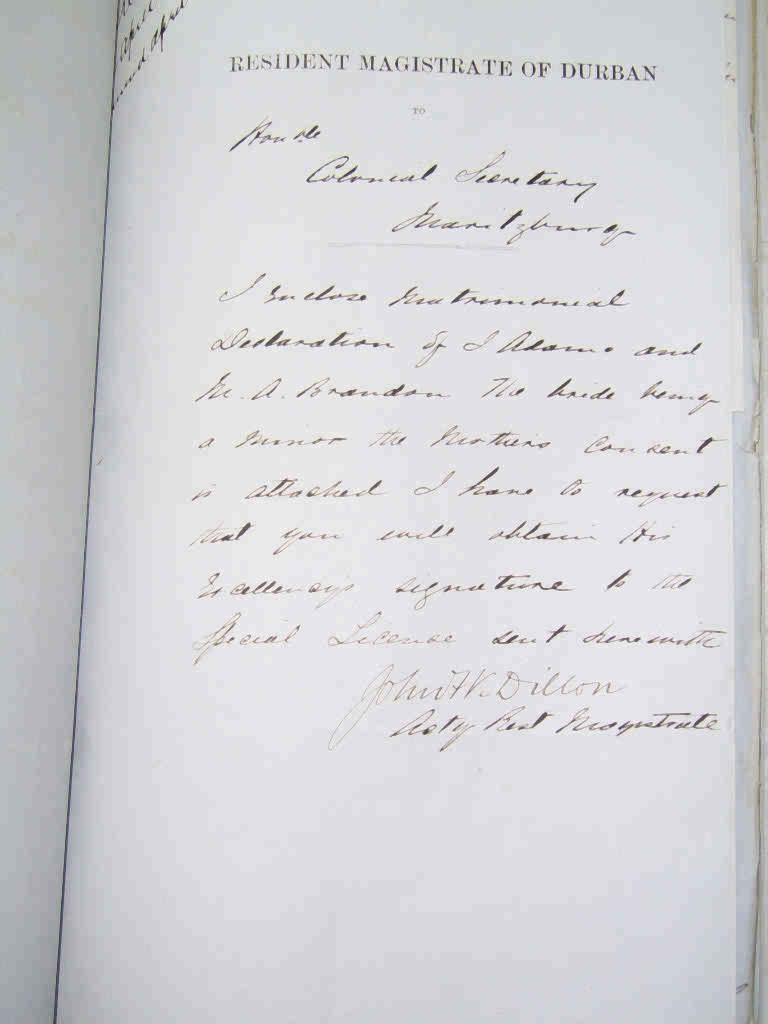 April
April
RESIDENT MAGISTRATE OF DURBAN
TO
Honble
Colonial Secretary
Maritzburg
I Enclose Matrimonial
Declaration of I Adams and
M. A. Brandon The bride being
a Minor the Mothers Consent
is attached I have to request
that you will obtain His
Excellency's signature to the
Special License sent herewith
John Dillon
Actg Rest Magistrate